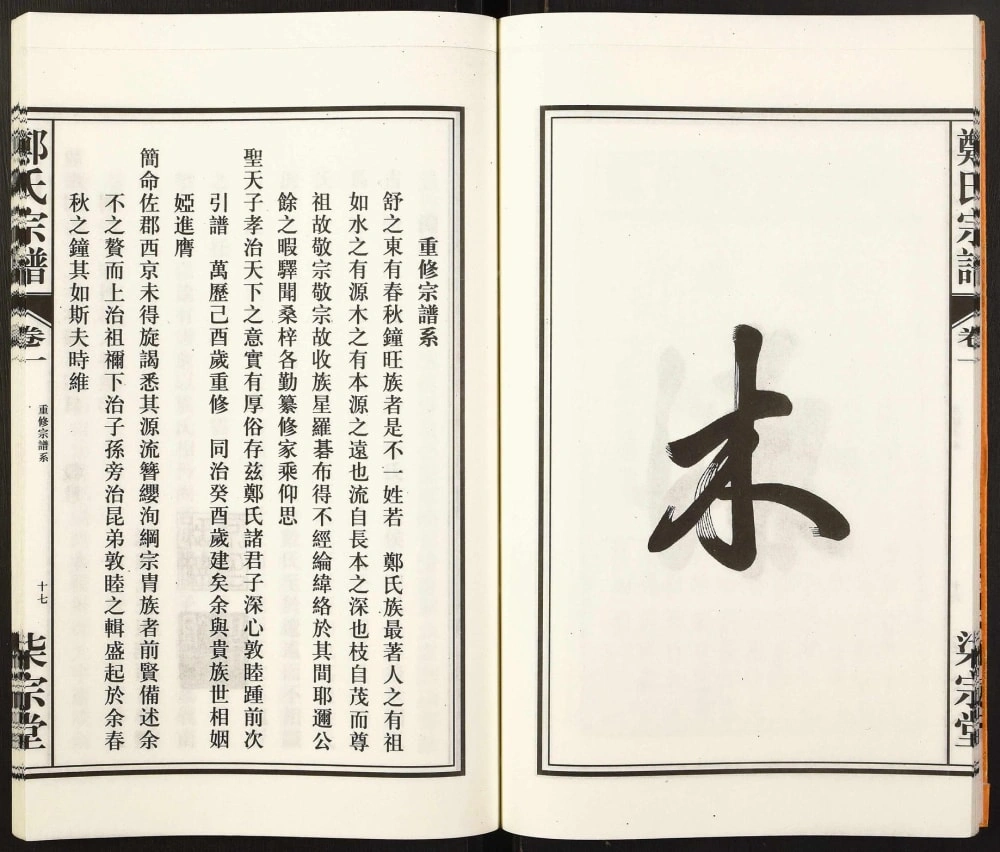 鄭氏宗譜
卷一
柒宗堂
木
重修宗譜系
舒之東有春秋鐘旺族者是不一姓若　鄭氏族最著人之有祖
如水之有源木之有本源之遠也流自長本之深也枝自茂而尊
祖故敬宗敬宗故收族星羅碁布得不經綸緯絡於其間耶邇公
餘之暇驛聞桑梓各勤纂修家乘仰思
聖天子孝治天下之意實有厚俗存茲鄭氏諸君子深心敦睦踵前次
引譜　萬歷己酉歲重修　同治癸酉歲建矣余與貴族世相姻
婭進膺
簡命佐郡西京未得旋謁悉其源流簪纓洵綱宗冑族者前賢備述余
不之贅而上治祖禰下治子孫旁治昆弟敦睦之輯盛起於余春
秋之鐘其如斯夫時維
鄭氏宗譜
卷一
重修宗譜系
十七
柒宗堂